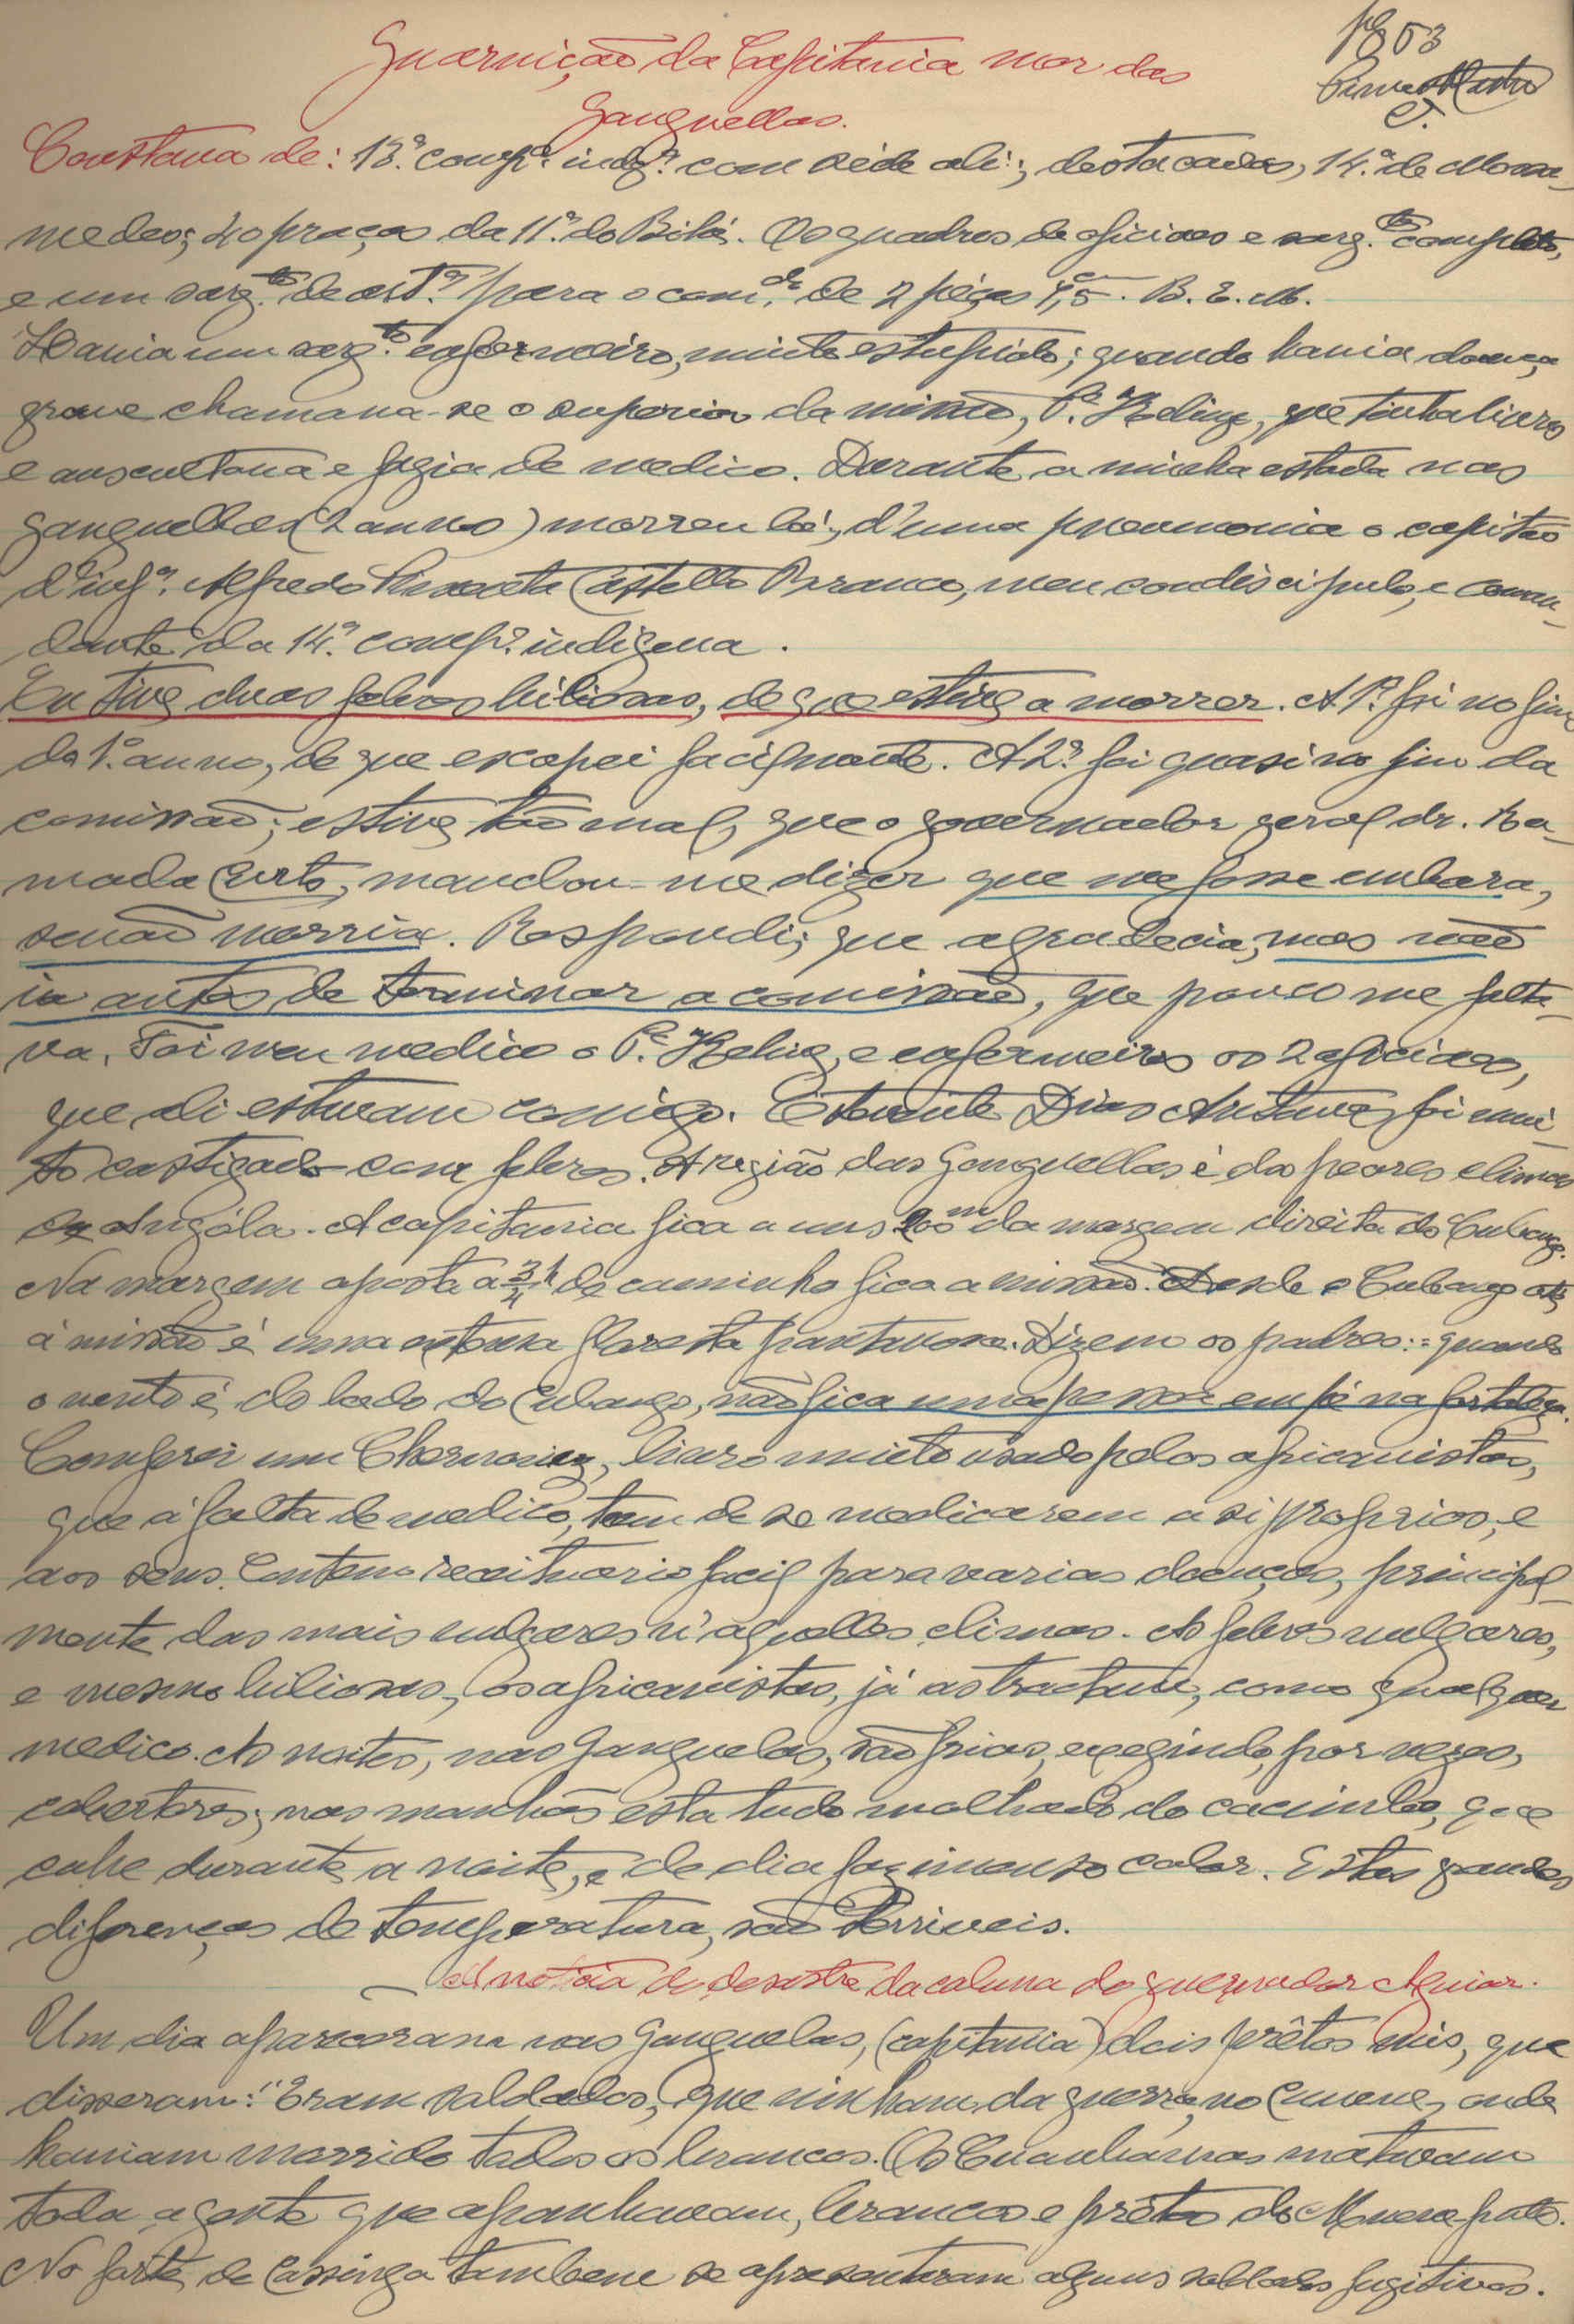 Guarnição da Capitania mor das
Ganguellas.
Constava de: 13.ª comp.ª indg.ª com séde ali; destacadas, 14.ª de Mossa-
medes; 40 praças da 11.ª do Bihé. Os quadros de oficiaes e sarg.tos completos,
e um sarg.to de art.ª para o com.do de 2 peças 7,5 c. B. E. M.
Havia um sarg.to enfermeiro, muito estupido; quando havia doença
grave chamava-se o superior da missão, P.e que tinha livros
e auscultava e fazia de medico. Durante a minha estada nas
Ganguellas (2 annos) morreu lá, d'uma pneumonia o capitão
d'inf.ª Alfredo Castello Branco, meu condiscipulo, e coman-
dante da 14.ª comp.ª indigena.
Eu tive duas febres biliosas, de que estive a morrer. A 1.ª foi no fim
do 1.º anno, de que escapei facilmente. A 2.ª foi quasi no fim da
comissão; estive tão mal, que o governador geral dr. Ra-
mada Curto, mandou-me dizer que me fosse embora,
senão morria. Respondi, que agradecia, mas não
ia antes de terminar a comissão, que pouco me falta-
va. Foi meu medico o P.e e enfermeiros os 2 oficiaes,
que ali estavam comigo. O tenente Dias Antunes foi mui-
to castigado com febres. A região das Ganguellas é dos peores climas
de Angóla. A capitania fica a uns 200m da margem direita do Cubango.
Na margem oposta a 3/4 h de caminho fica a missão. Desde o Cubango até
á missão é uma extensa floresta pantanosa. Dizem os padres: = quando
o vento é do lado do Cubango, não fica uma pessoa em pé na fortaleza.
Comprei um Chernoviz, livro muito usado pelos africanistas,
que á falta de medico, tem de se medicarem a si proprios, e
aos seus. Contem receituario facil para varias doenças, principal-
mente das mais vulgares n'aquelles climas. As febres vulgares,
e mesmo biliosas, os africanistas, já as tractam, como qualquer
medico. As noites, nas Ganguelas, são frias, exegindo, por vezes,
cobertores; nas manhãs está tudo molhado do cacimbo, que
cahe durante a noite, e de dia faz imenso calor. Estas grandes
diferenças de temperatura, são terriveis.
A noticia do desastre da coluna do governador Aguiar.
Um dia apareceram nas Ganguelas, (capitania) dois prêtos nús, que
disseram: "Eram soldados, que vinham da guerra, no Cunene, onde
haviam morrido todos os brancos. Os Cuanhâmas matavam
toda a gente que apanhavam, brancos e prêtos do Muene puto.
No forte de Cassinga tambem se apresentaram alguns soldados fugitivos.